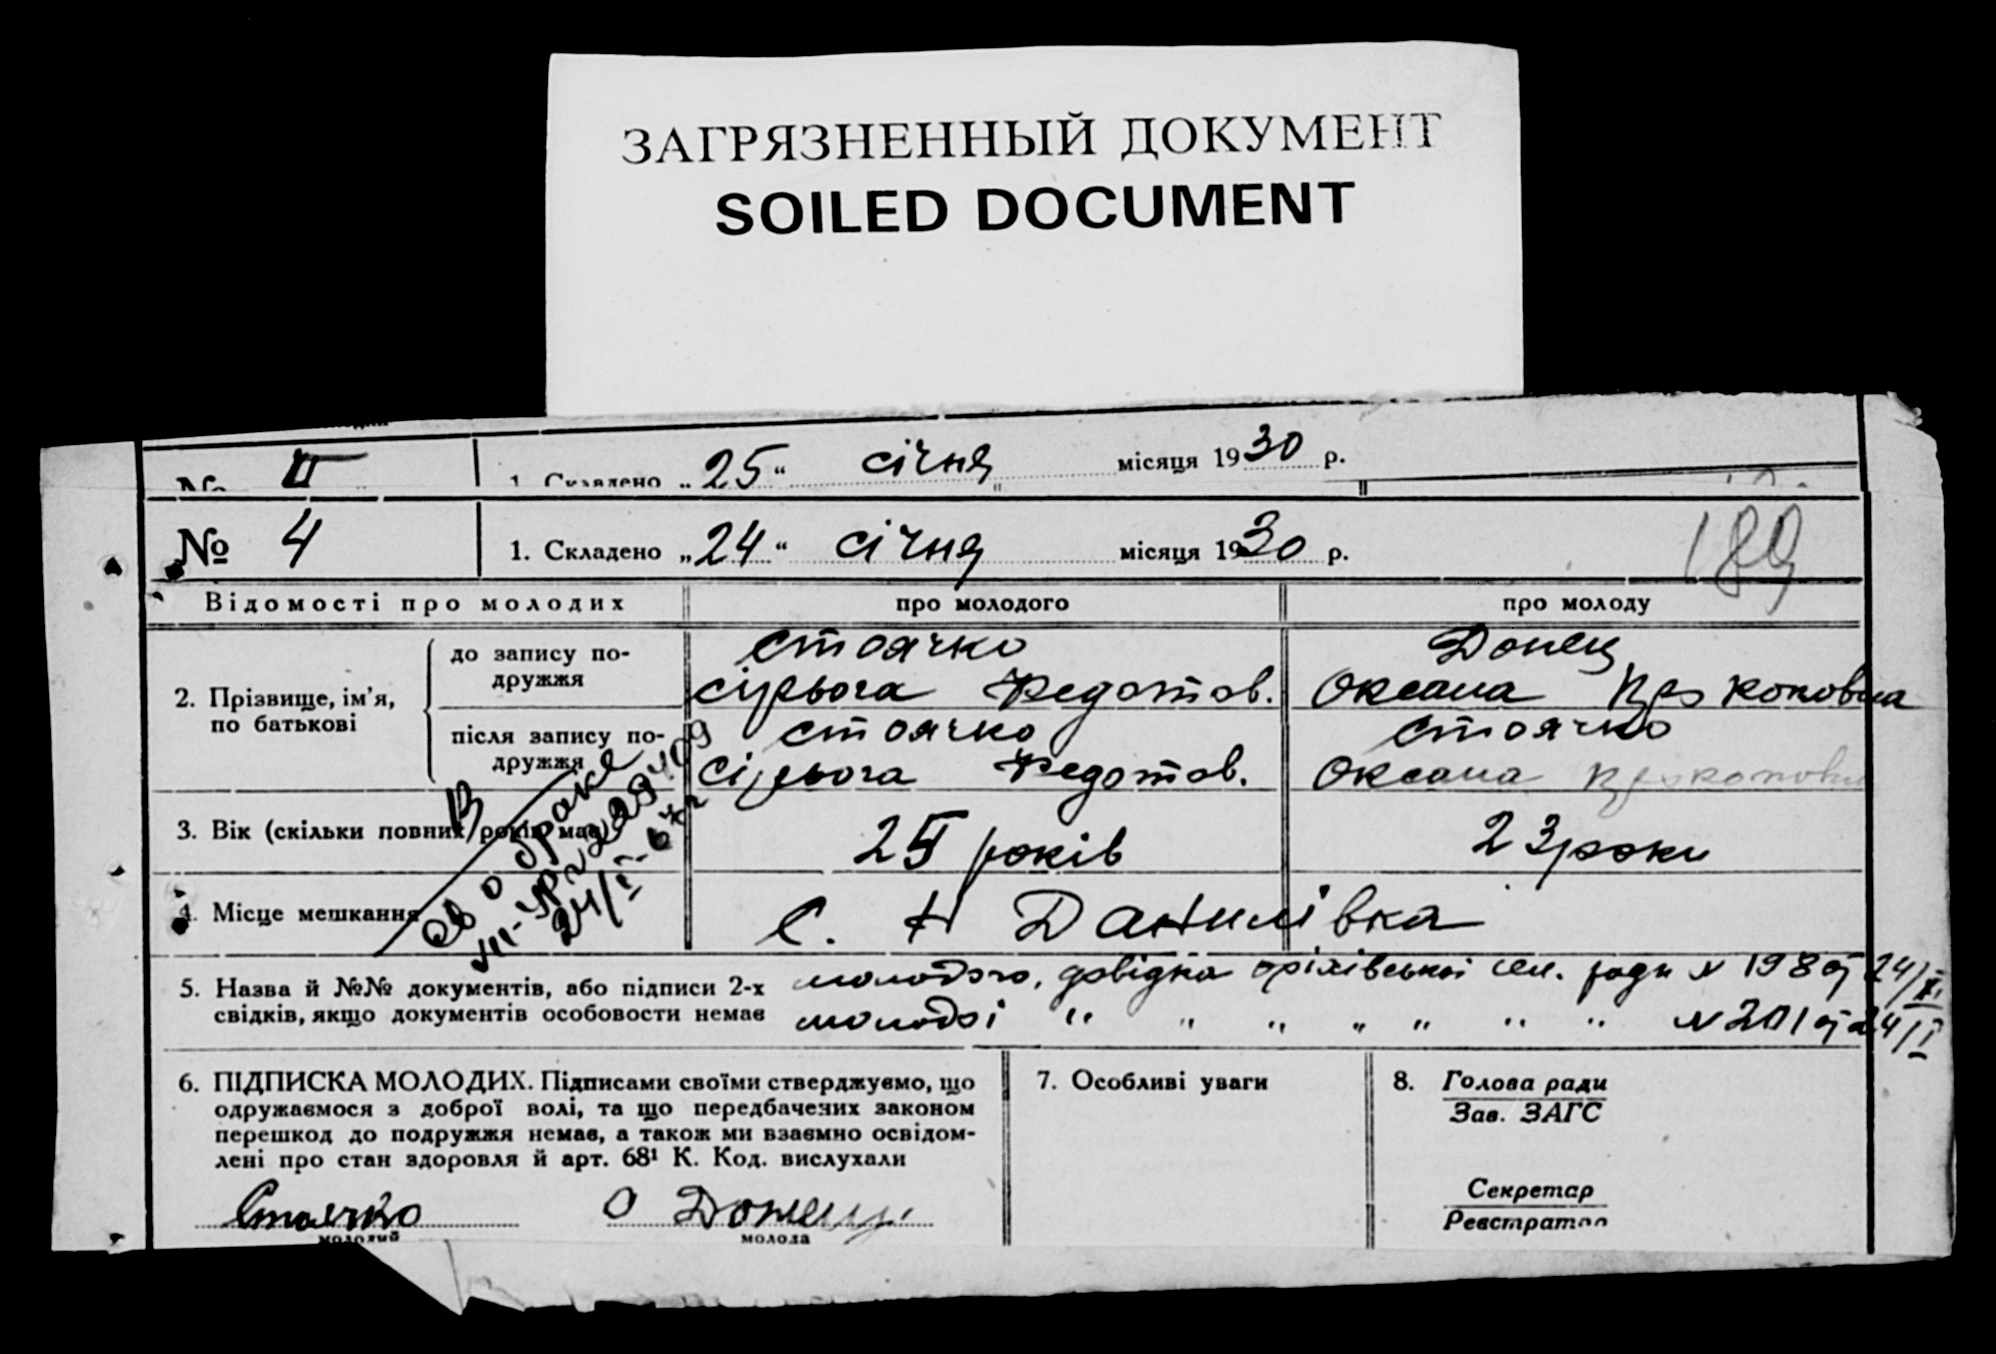 ЗАГРЯЗНЕННЫЙ ДОКУМЕНТ
SOILED DOCUMENT
№ 1. Складено „25“ січня місяця 1930 р.
№ 4 1. Складено „24“ січня місяця 1930 р.
189
Відомості про молодих про молодого про молоду
2. Прізвище, ім’я, по батькові
до запису по-
дружжя
Стоячко Донец
Сірьога Федотов. Оксана Прокоповна
після запису по-
дружжя
Стоячко Стоячко
Сірьога Федотов. Оксана Прокоповна
3. Вік (скільки повних років має) 25 років 23 роки
4. Місце мешкання с. Н Данилівка
В
св о браке
III-УР 229409
24/I-67г
5. Назва й №№ документів, або підписи 2-х
свідків, якщо документів особовости немає
молодого, довідка оріхівської сел. ради № 198 від 24/I
молодої " " " " " " " № 201 від 24/I
6. ПІДПИСКА МОЛОДИХ. Підписами своїми стверджуємо, що
одружаємося з доброї волі, та що передбачених законом
перешкод до подружжя немає, а також ми взаємно освідом-
лені про стан здоровля й арт. 68¹ К. Код. вислухали
Стоячко О Донец
молодий молода
7. Особливі уваги
8. Голова ради
Зав. ЗАГС
Секретар
Реєстратор